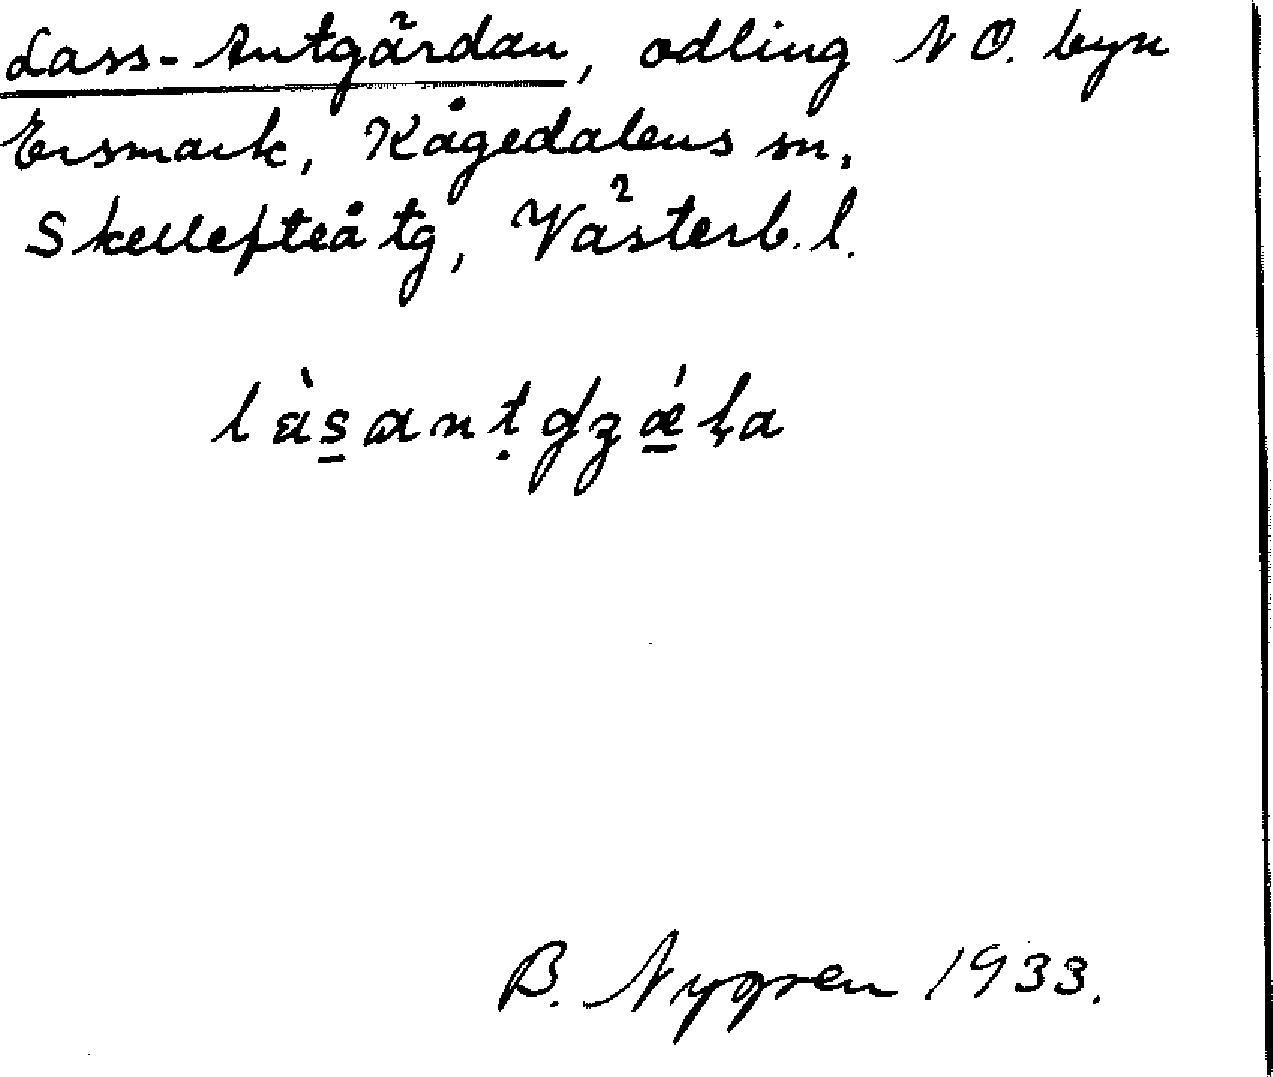 Lass-Antgärdan, odling N O. byn
Ersmark, Kågedalens sn,
Skellefteå tg, Västerb. l.
B. Nygren 1933.